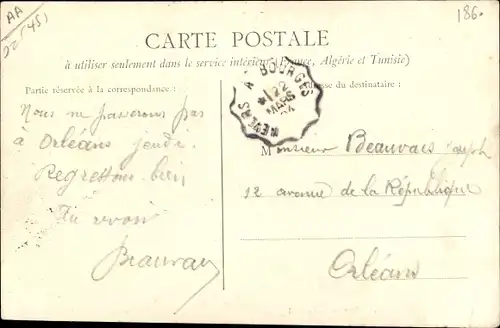 AA
186.
CARTE POSTALE
à utiliser seulement dans le service intérieur (France, Algérie et Tunisie)
Partie réservée à la correspondance :
Adresse du destinataire :
NEVERS A BOURGES
22
MARS
Nous ne passerons pas
à Orléans jeudi.
Regrettons bien
Au revoir
Beauvais
Monsieur Beauvais Joseph
12 avenue de la République
Orléans